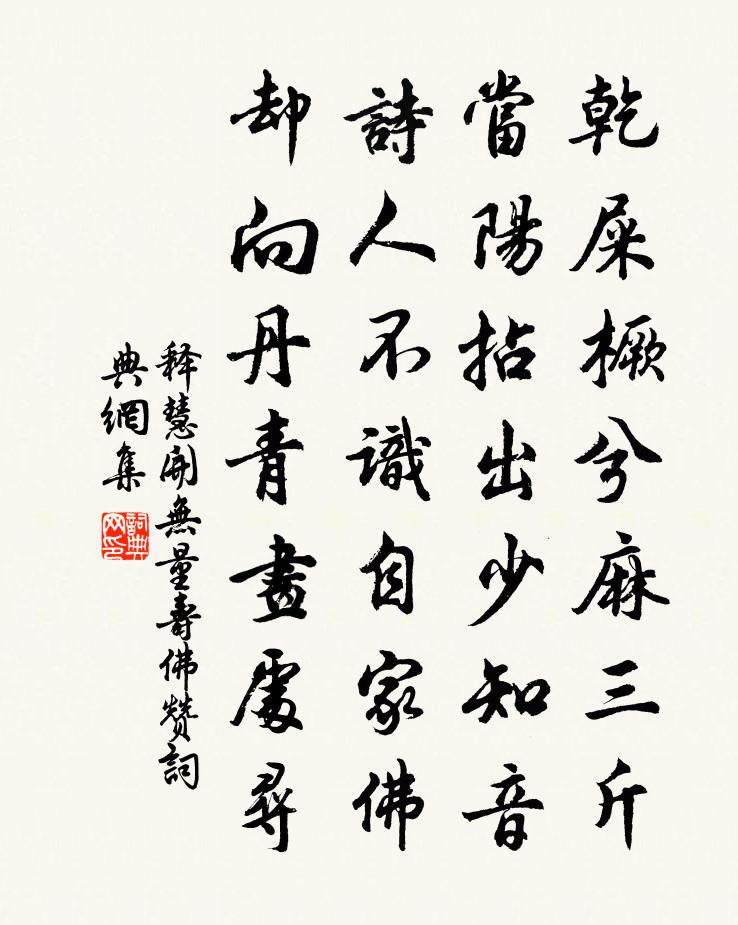 乾屎橛兮麻三斤
當陽拈出少知音
詩人不識自家佛
却向丹青畫處尋
释慧開無量壽佛赞詞
典網集
詞典网印